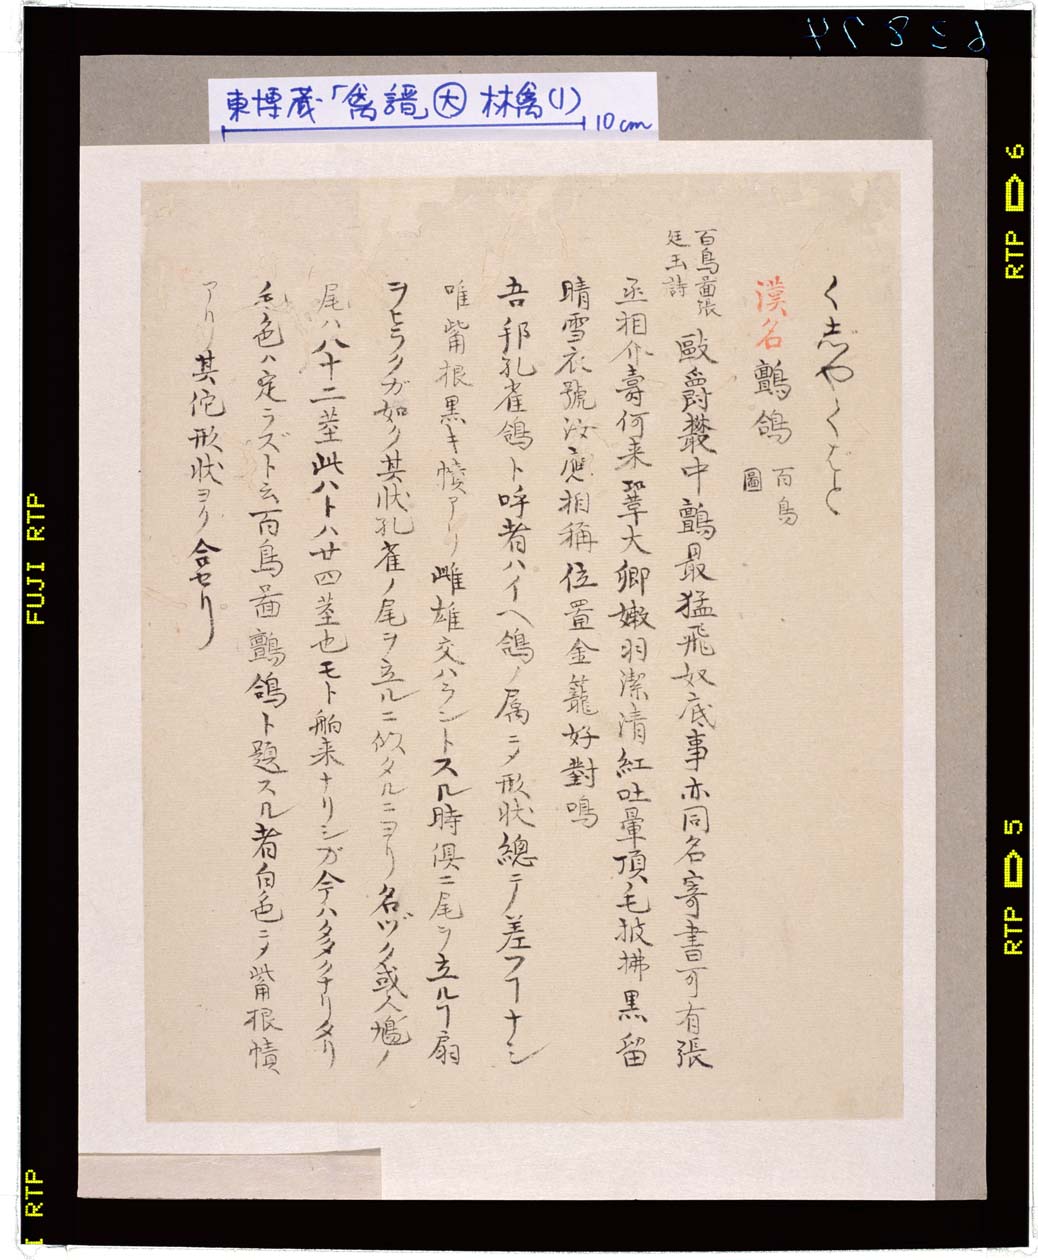 63874
東博蔵「禽譜」大 林禽(1)
10cm
くじやくばと
漢名 鸇鴿 百鳥圖
百鳥啚張廷玉詩
敺爵叢中鸇最猛飛奴底事亦同名寄書可有張
丞相介壽何来鞏大卿嫩羽潔清紅吐暈頂毛披拂黒留
晴雪衣號汝應相稱位置金籠好對鳴
吾邦孔雀鴿ト呼者ハイヘ鴿ノ属ニメ形状總テノ差フヿナシ
唯觜根黒キ幘アリ雌雄交ハラントスル時倶ニ尾ヲ立ルヿ扇
ヲヒラクガ如ク其状孔雀ノ尾ヲ立ルニ似タルニヨリ名ヅク或人鳩ノ
尾ハ八十二茎此ハトハ廿四茎也モト舶来ナリシガ今ハ多クナリタリ
毛色ハ定ラズト云百鳥啚鸇鴿ト題スル者白色ニメ觜根幘
アリ其佗形状ヨク合セリ
RTP 6
RTP 5
FUJI RTP
I RTP